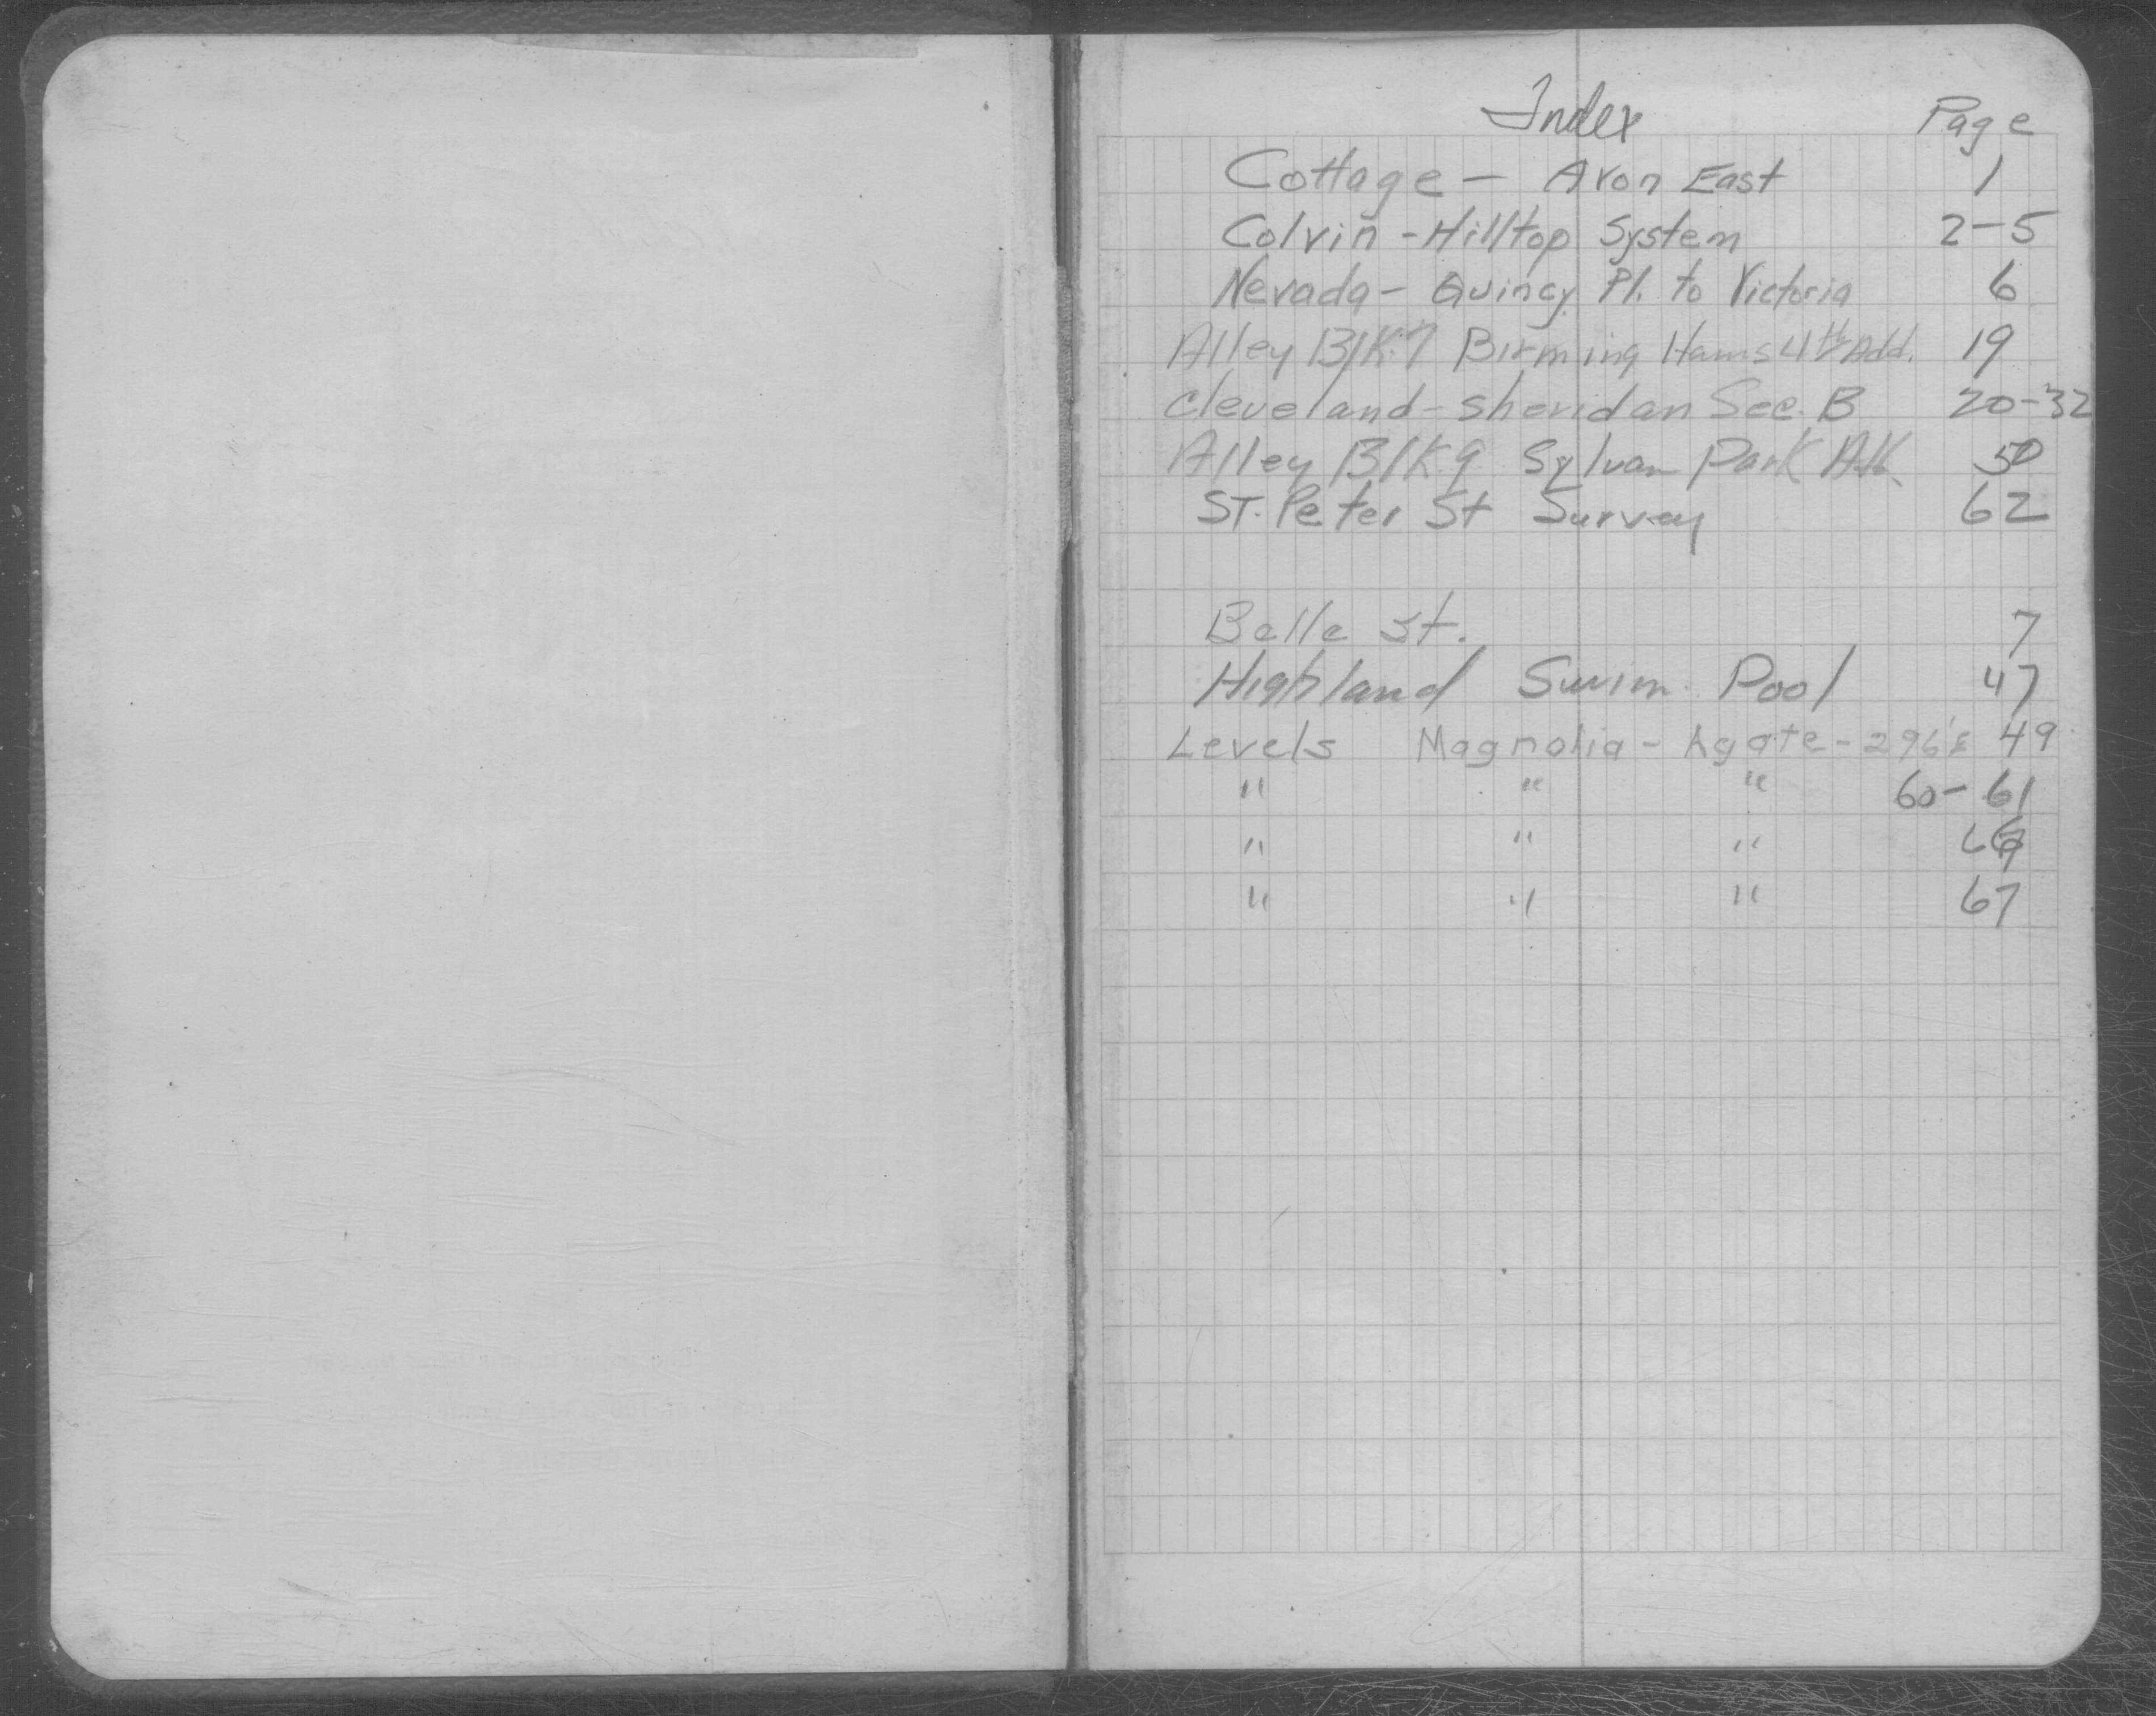 Index Page
Cottage - Avon East 1
Colvin - Hilltop System 2-5
Nevada - Quincy Pl. to Victoria 6
Alley Blk. 7 Birming Hams 4th Add. 19
Cleveland - Sheridan Sec. B 20-32
Alley Blk 9 Sylvan Park 50
ST. Peter St Survey 62
Belle St. 7
Highland Swim. Pool 47
Levels Magnolia - Agate - 296'E 49
" " " 60-61
" " "
" " " 67